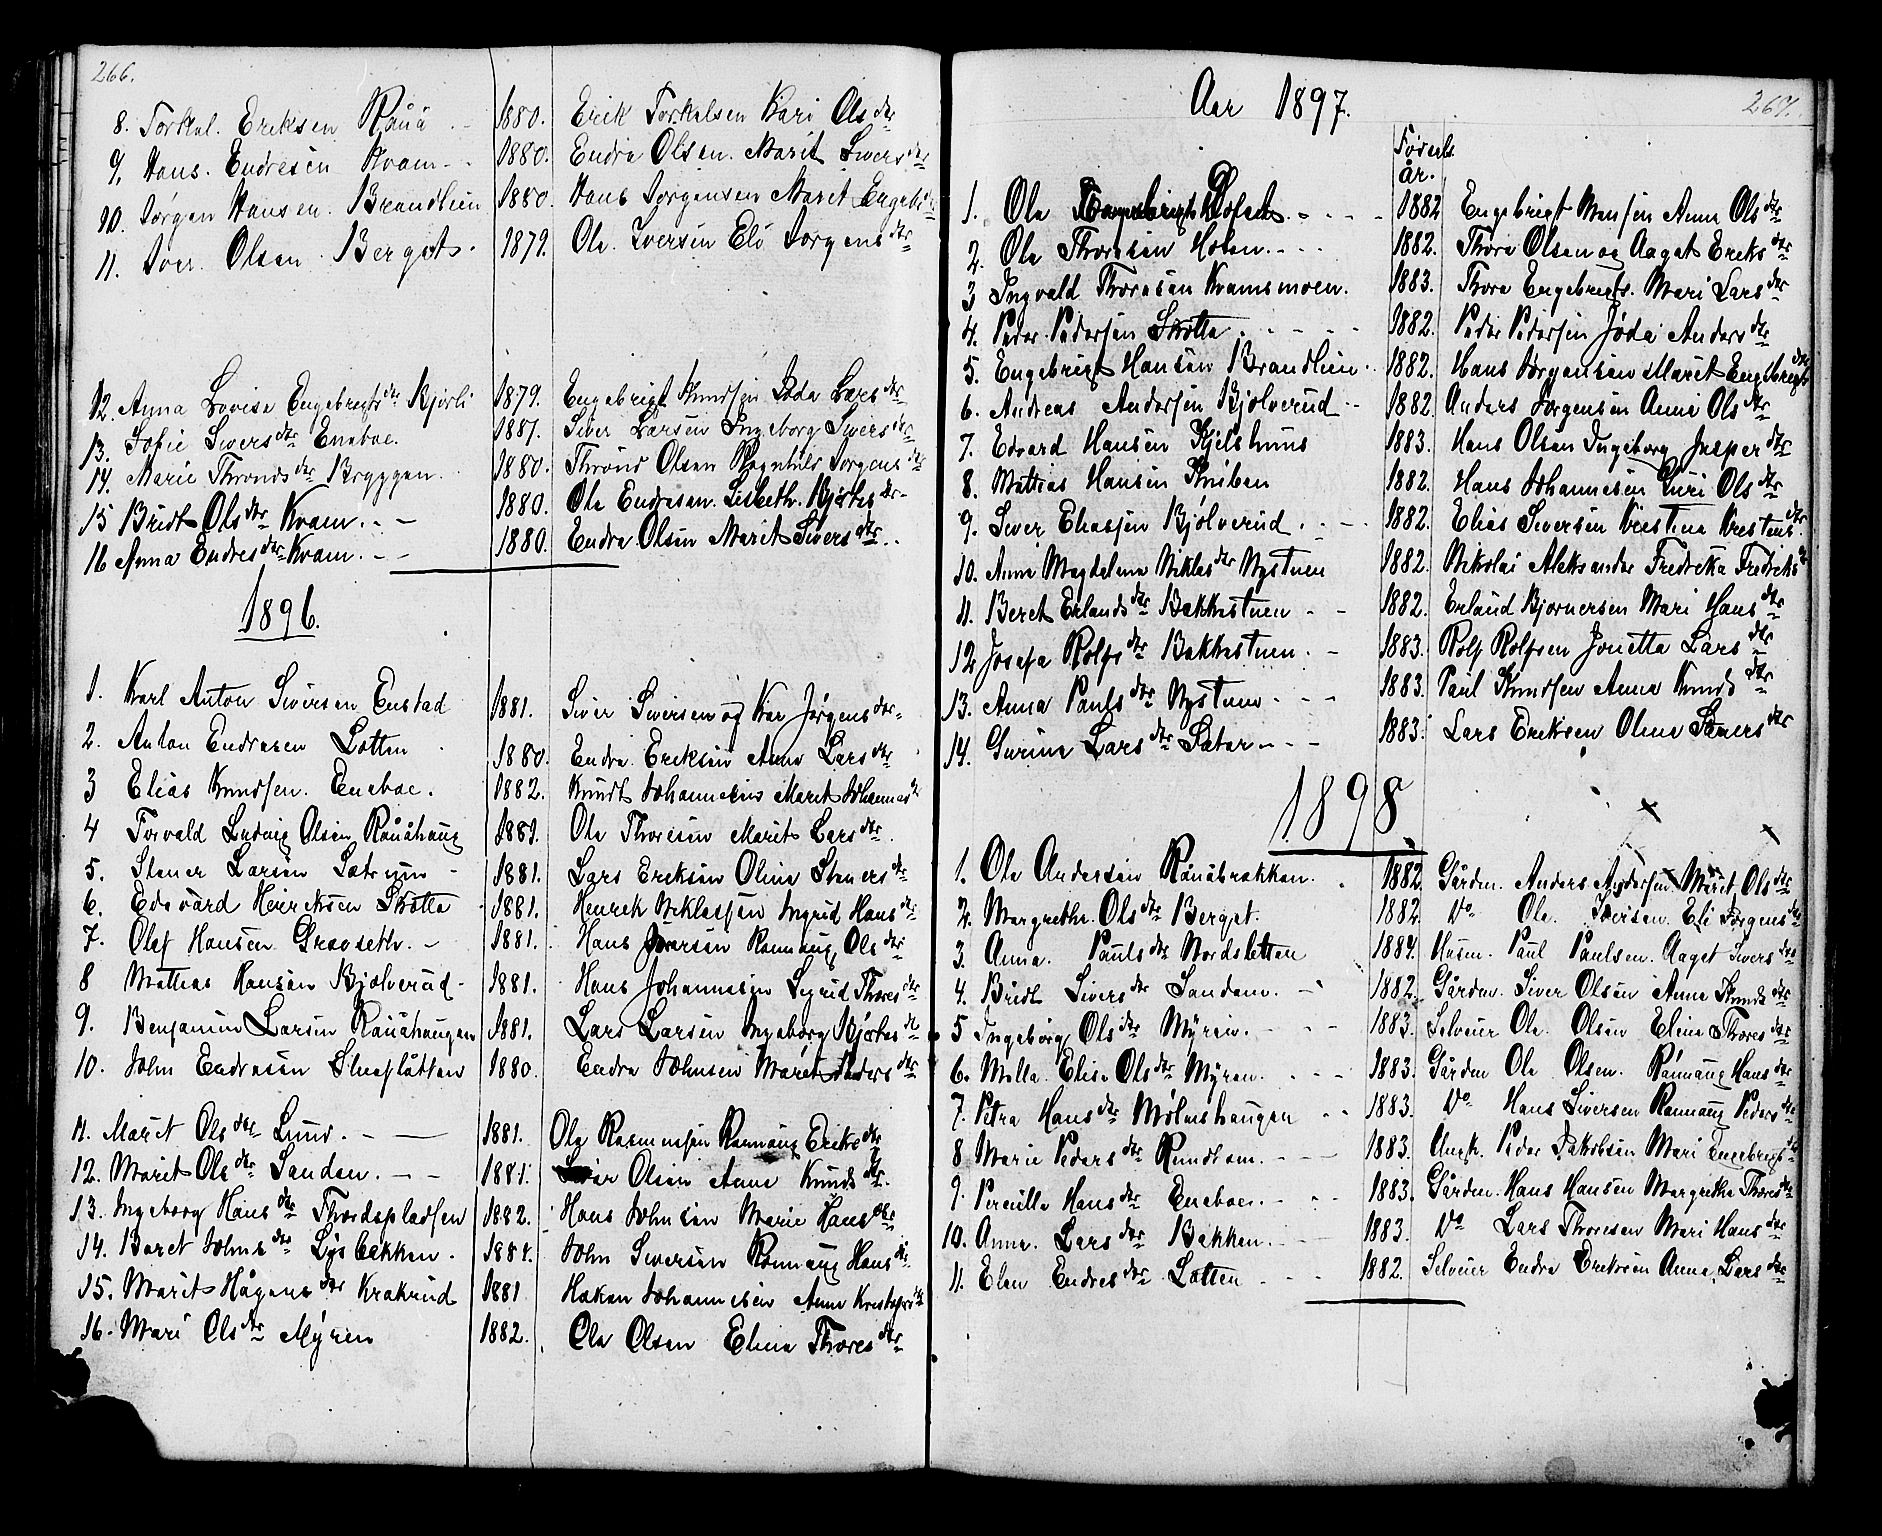 266.
8. Torkal. Eriksen Rauå 1880. Erik Torkalsen Kari Olsdtr
9. Hans. Endresen Kvam 1880. Endra Olsen. Marit Siversdtr
10. Jørgen Hansen. Brandlien 1880. Hans Jørgensen Marit Engebr
11. Iver. Olsen Berget. 1879. Ole. Iversen Eli Jørgensdtr
12. Anna Lovise Engebregtsdtr Bjorli 1879. Engebrigt Knudsen Larsdtr
13. Sofie Siversdtr Eneboe. 1881. Siver Larsen Ingeborg Siversdtr
14. Marie Throndsdtr Bryggen. 1880. Thrond Olsen Ragnhild Jørgensdtr
15 Bridt Olsdtr Kvam. 1880. Ole Endresen. Lisbeth.
16 Anna Endresdtr Kvam. 1880. Endra Olsen Marit Siversdtr
1896.
1. Karl Anton Siversen Enstad 1881. Siver Siversen og Kar Jørgensdtr
2. Anton Endresen Lotten 1880. Endra. Eriksen Anne Larsdtr
3 Elias Knudsen. Eneboe. 1882. Knudt Johannesen Marit Johannesd
4 Torvald Ludvig Olsen Rauåhaug 1881. Ole Thoresen Marit Larsdtr.
5. Stener Larsen 1881. Lars Eriksen Oline Stenersdtr
6. Edevard Henriksen Skotte 1881. Henrik Niklassen Ingrid Hansdtr
7. Olef Hansen Gravseth. 1881. Hans Iversen Rannaug Olsdtr
8 Mathias Hansen Bjølverud 1881. Hans Johannesen Sigrid Thoresdtr
9. Benjamin Larsen Rauåhaugen 1881. Lars Larsen Ingeborg
10. John Endresen Stueflåtten 1880. Endre Johnsen Marit
11. Marit Olsdtr Lund. 1881. Ole Rasmussen Rannaug Eriksdtr
12. Marit Olsdtr Sanden. 1881. Olsen Anne Knudsdtr.
13. Ingeborg Hansdtr Thordspladsen 1882. Hans Johnsen Marie Hansdtr
14. Beret Johnsdtr Lysbakken. 1881. John Siversen Rannaug Hansdtr
15. Marit Hågensdtr Krakrud 1881 Hakon Johannesen Anne
16. Mari Olsdtr Myren 1882. Ole Olsen Eline Thoresdtr
267.
Aar 1897.
Fødsels
år.
1. Ole 1882 Engebrigt Hansen Anne Olsdtr
2. Ole Thoresen Holen. 1882. Thore Olsen og Aagot Eriksdtr
3 Ingvald Thoresen Kvamsmoen. 1883. Thore Engebrigts. Mari Larsdtr
4. Peder Pedersen Skotte. 1882. Peder Pedersen Andersdtr
5. Engebrigt Hansen Brandlien 1882. Hans Jørgensen Marit Engebrigtsdtr
6. Andreas Andersen Bjølverud 1882. Anders Jørgensen Anne Olsdtr
7. Edvard Hansen Kjelshuus 1883. Hans Olsen Ingeborg Jesperdtr
8. Mathias Hansen 1882. Hans Johannesen Guri Olsdtr
9. Siver Eliassen Bjølverud. 1882. Elias Siversen Kristina Kristensdtr
10. Anne Magdalena Niklasdtr Nystuen 1882. Nikolai Aleksander Fredrika Fredriksd
11. Beret Erlandsdtr Bakkestuen 1882. Erland Bjørnersen Mari Hansdtr
12 Josefa Rolfsdtr Bakkestuen. 1883. Rolf Rolfsen Jonetta Larsdtr
13. Anna Paulsdtr Nystuen 1883. Paul Knudsen Anna Knudsdtr
14. Gurine Larsdtr Sæter 1883. Lars Eriksen Oline Stenersdtr
1898
1. Ole Andersen Rauåbrækken. 1882. Gårdm. Anders Andersen Marit Olsdtr
2. Margrethe. Olsdtr Berget. 1882. Do Ole. Iversen. Eli Jørgensdtr
3. Anna. Paulsdtr Nordsletten 1884. Husm. Paul Paulsen. Aaget Siversdtr
4. Bridt Siversdtr Sanden. 1882. Gårdm. Siver Olsen Anne Knudsdtr
5 Ingeborg Olsdtr Myren. 1883. Selveier Ole. Olsen Eline Thoresdtr
6. Milla. Elise Olsdtr Myren. 1883. Gårdm Ole Olsen. Rannaug Hansdtr
7. Petra Hansdtr Mølmshaugen 1883. Do Hans Siversen Rannaug Pedersdtr
8 Marie Pedersdtr Rundhom. 1883. Peder Jakobsen Mari Engebrigtsd
9. Pernille Hansdtr Eneboe. 1883. Gårdm. Hans Hansen Margrethe Thoresdtr
10. Anne. Larsdtr Bakken. 1883. Do Lars Thoresen Mari Hansdtr
11. Elen Endresdtr Lotten 1882. Selveier Endre Eriksen Anna, Larsdtr